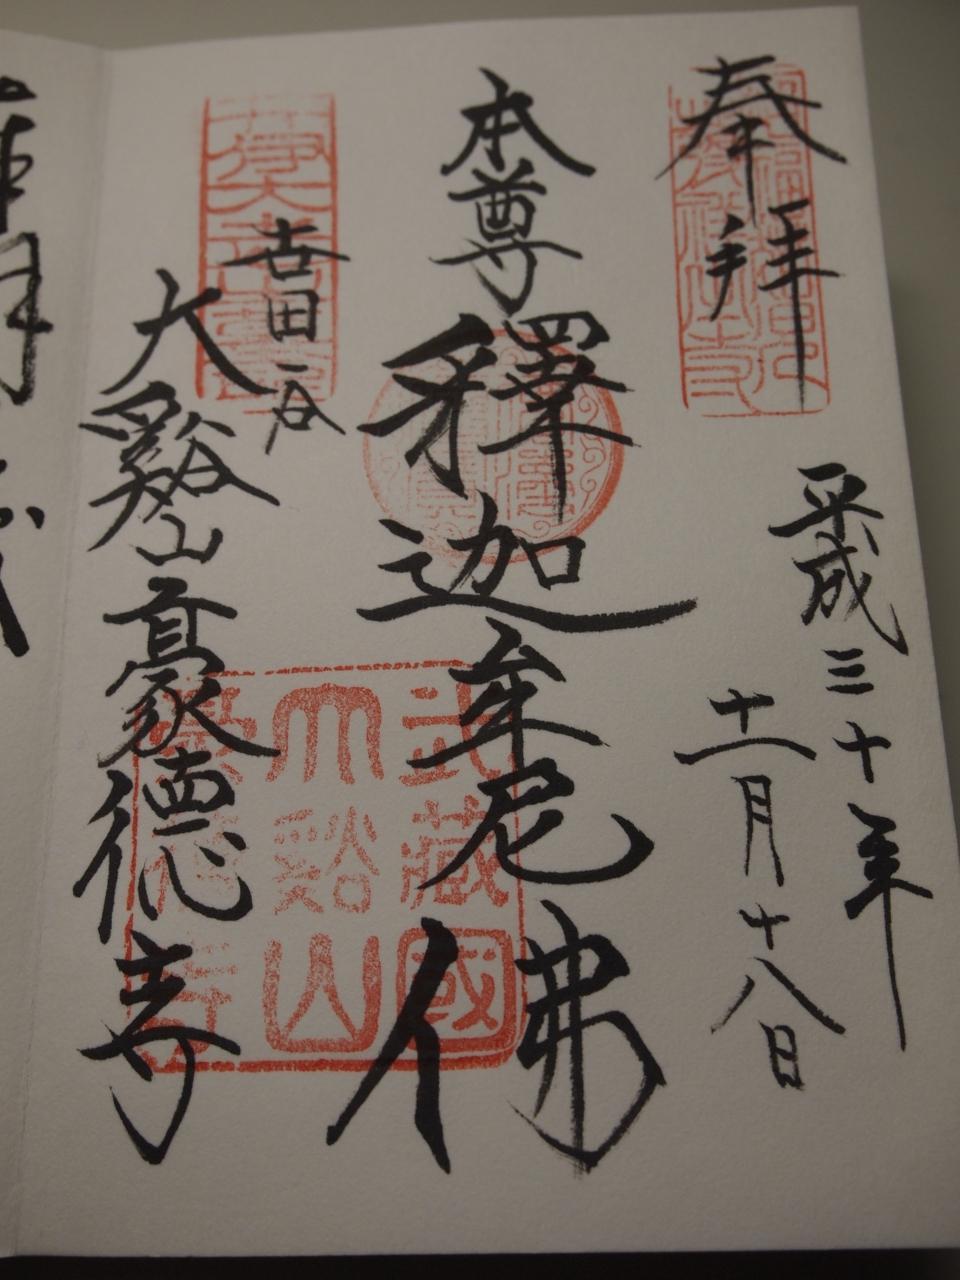 奉拝
平成三十年
十一月十八日
本尊釋迦牟尼佛
世田谷
大谿山豪德寺
武藏國
大谿山
豪德寺